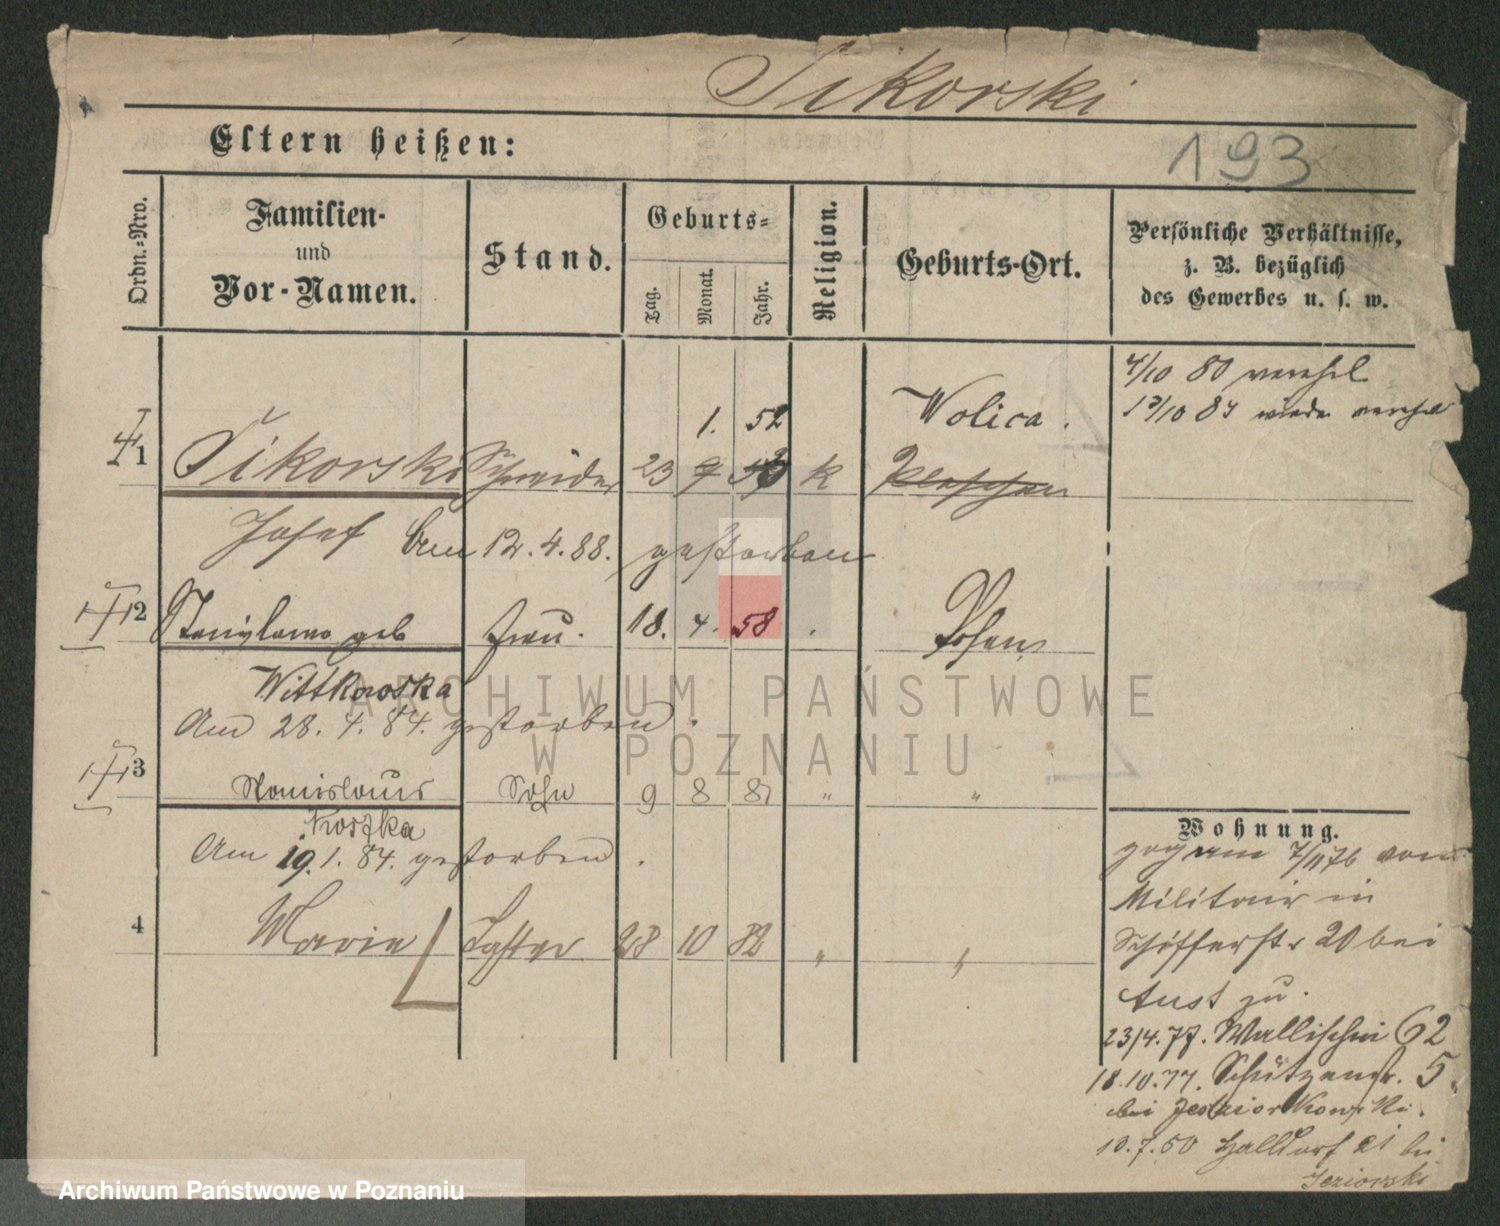 Sikorski
193
Eltern heißen:
Ordn.-Nro.
Familien-
und
Vor-Namen.
Stand.
Geburts-
Tag.
Monat.
Jahr.
Religion.
Geburts-Ort.
Persönliche Verhältnisse,
z. B. bezüglich
des Gewerbes u. s. w.
4/10 80 verehel
1. 52 Wolica. 13/10 84 wieder verehel
1 Sikorski Schneider 23 9 53 k Pleschen
Josef Am 12. 4. 88. gestorben
2 Stanislawa geb Frau. 18. 4. 58 . Posen
Wittkowska
Am 28. 4. 84. gestorben.
3 Stanislaus Sohn 9 8 81 " "
Kostka
Am 19. 1. 84. gestorben.
4 Marie Tochter 28 10 82 " "
Wohnung.
zog am 7/11 76 vom
Militair in
Schifferstr 20 bei
Aust zu.
23/4. 77. Wallischei 62
18. 10. 77. Schützenstr. 5.
bei Jeziorkowski.
10. 7. 80 Halldorf 21 bei
Jeziorski
ARCHIWUM PAŃSTWOWE
W POZNANIU
Archiwum Państwowe w Poznaniu